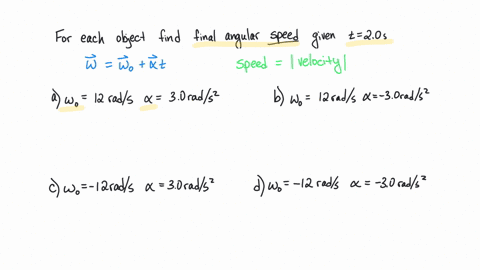 For each object find final angular speed given t=2.0s
ω⃗ = ω⃗₀ + α⃗ t speed = |velocity|
a) ω₀ = 12 rad/s α = 3.0 rad/s² b) ω₀ = 12 rad/s α = -3.0 rad/s²
c) ω₀ = -12 rad/s α = 3.0 rad/s² d) ω₀ = -12 rad/s α = -3.0 rad/s²